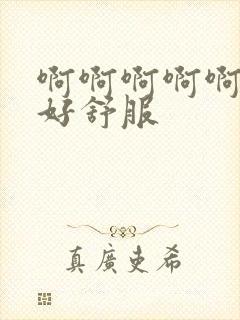 啊啊啊啊啊
好舒服
真廣史希